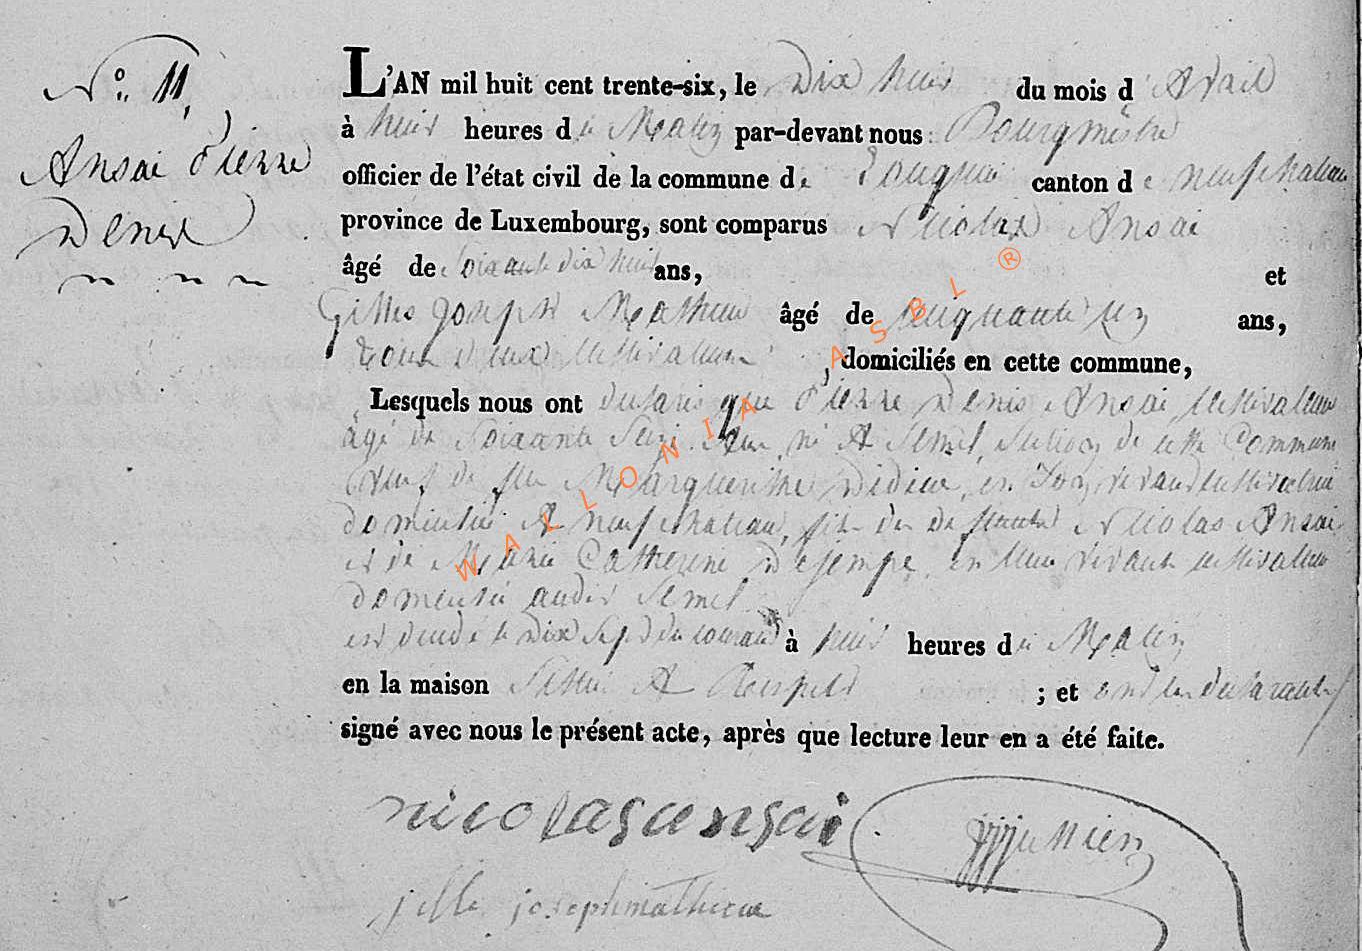 N°. 11,
Ansai Pierre
Denis
L'AN mil huit cent trente-six, le Dix huit du mois d'Avril
à huit heures du Matin par-devant nous Bourgmêstre
officier de l'état civil de la commune de canton de neufchateau
province de Luxembourg, sont comparus Nicolas Ansai
âgé de Soixante dix huit ans, et
Gilles Joseph Mathieu âgé de Cinquante ans,
tous deux cultivateur, domiciliés en cette commune,
Lesquels nous ont déclaré que Pierre Denis Ansai cultivateur
âgé de Soixante Seize Ans, né A Semel, Section de cette Commune
veuf de feu Marguerithe Didier, en Son vivant cultivatrice
domicilié A neufchateau, fils des deffunts Nicolas Ansai
et de Marie Catherine Dejempe, en leur vivant cultivateur
domicilié audit Semel
est decedé le Dix Sept du courant à huit heures du Matin
en la maison Sittué A ; et ont les déclarants
signé avec nous le présent acte, après que lecture leur en a été faite.
nicolas ansai
jille joseph mathieu
WALLONIA ASBL ®